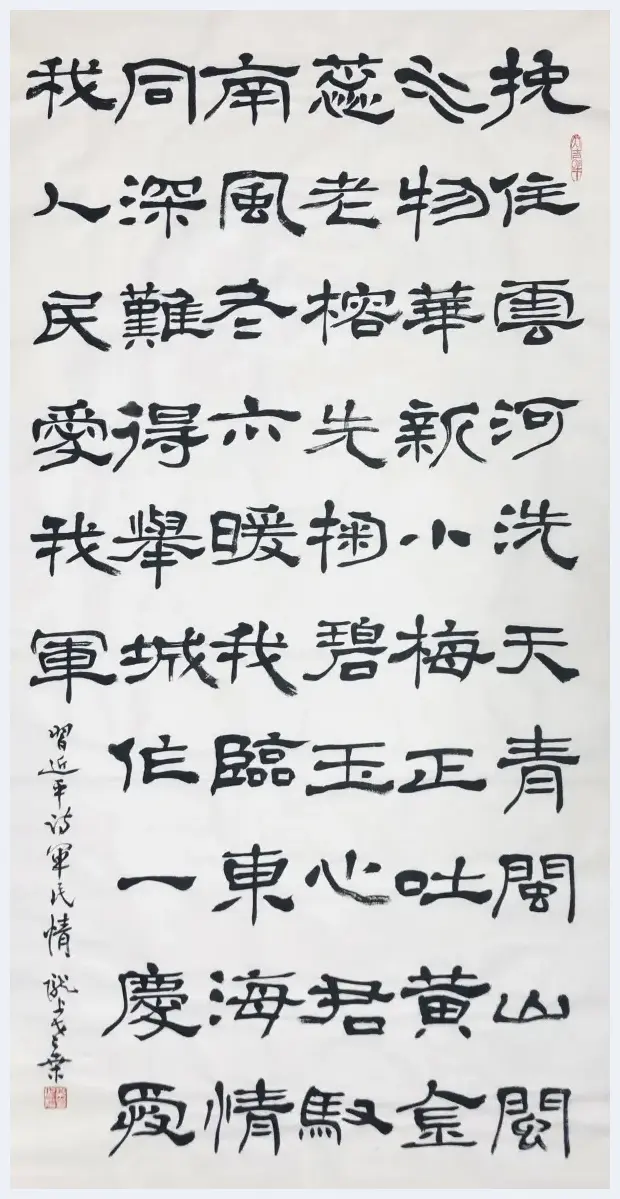 挽住雲河洗天青閩山閩
水物華新小梅正吐黄金
蕊老榕先掬碧玉心君馭
南風冬亦暖我臨東海情
同深難得舉城作一慶愛
我人民愛我軍
習近平詩軍民情 隴上